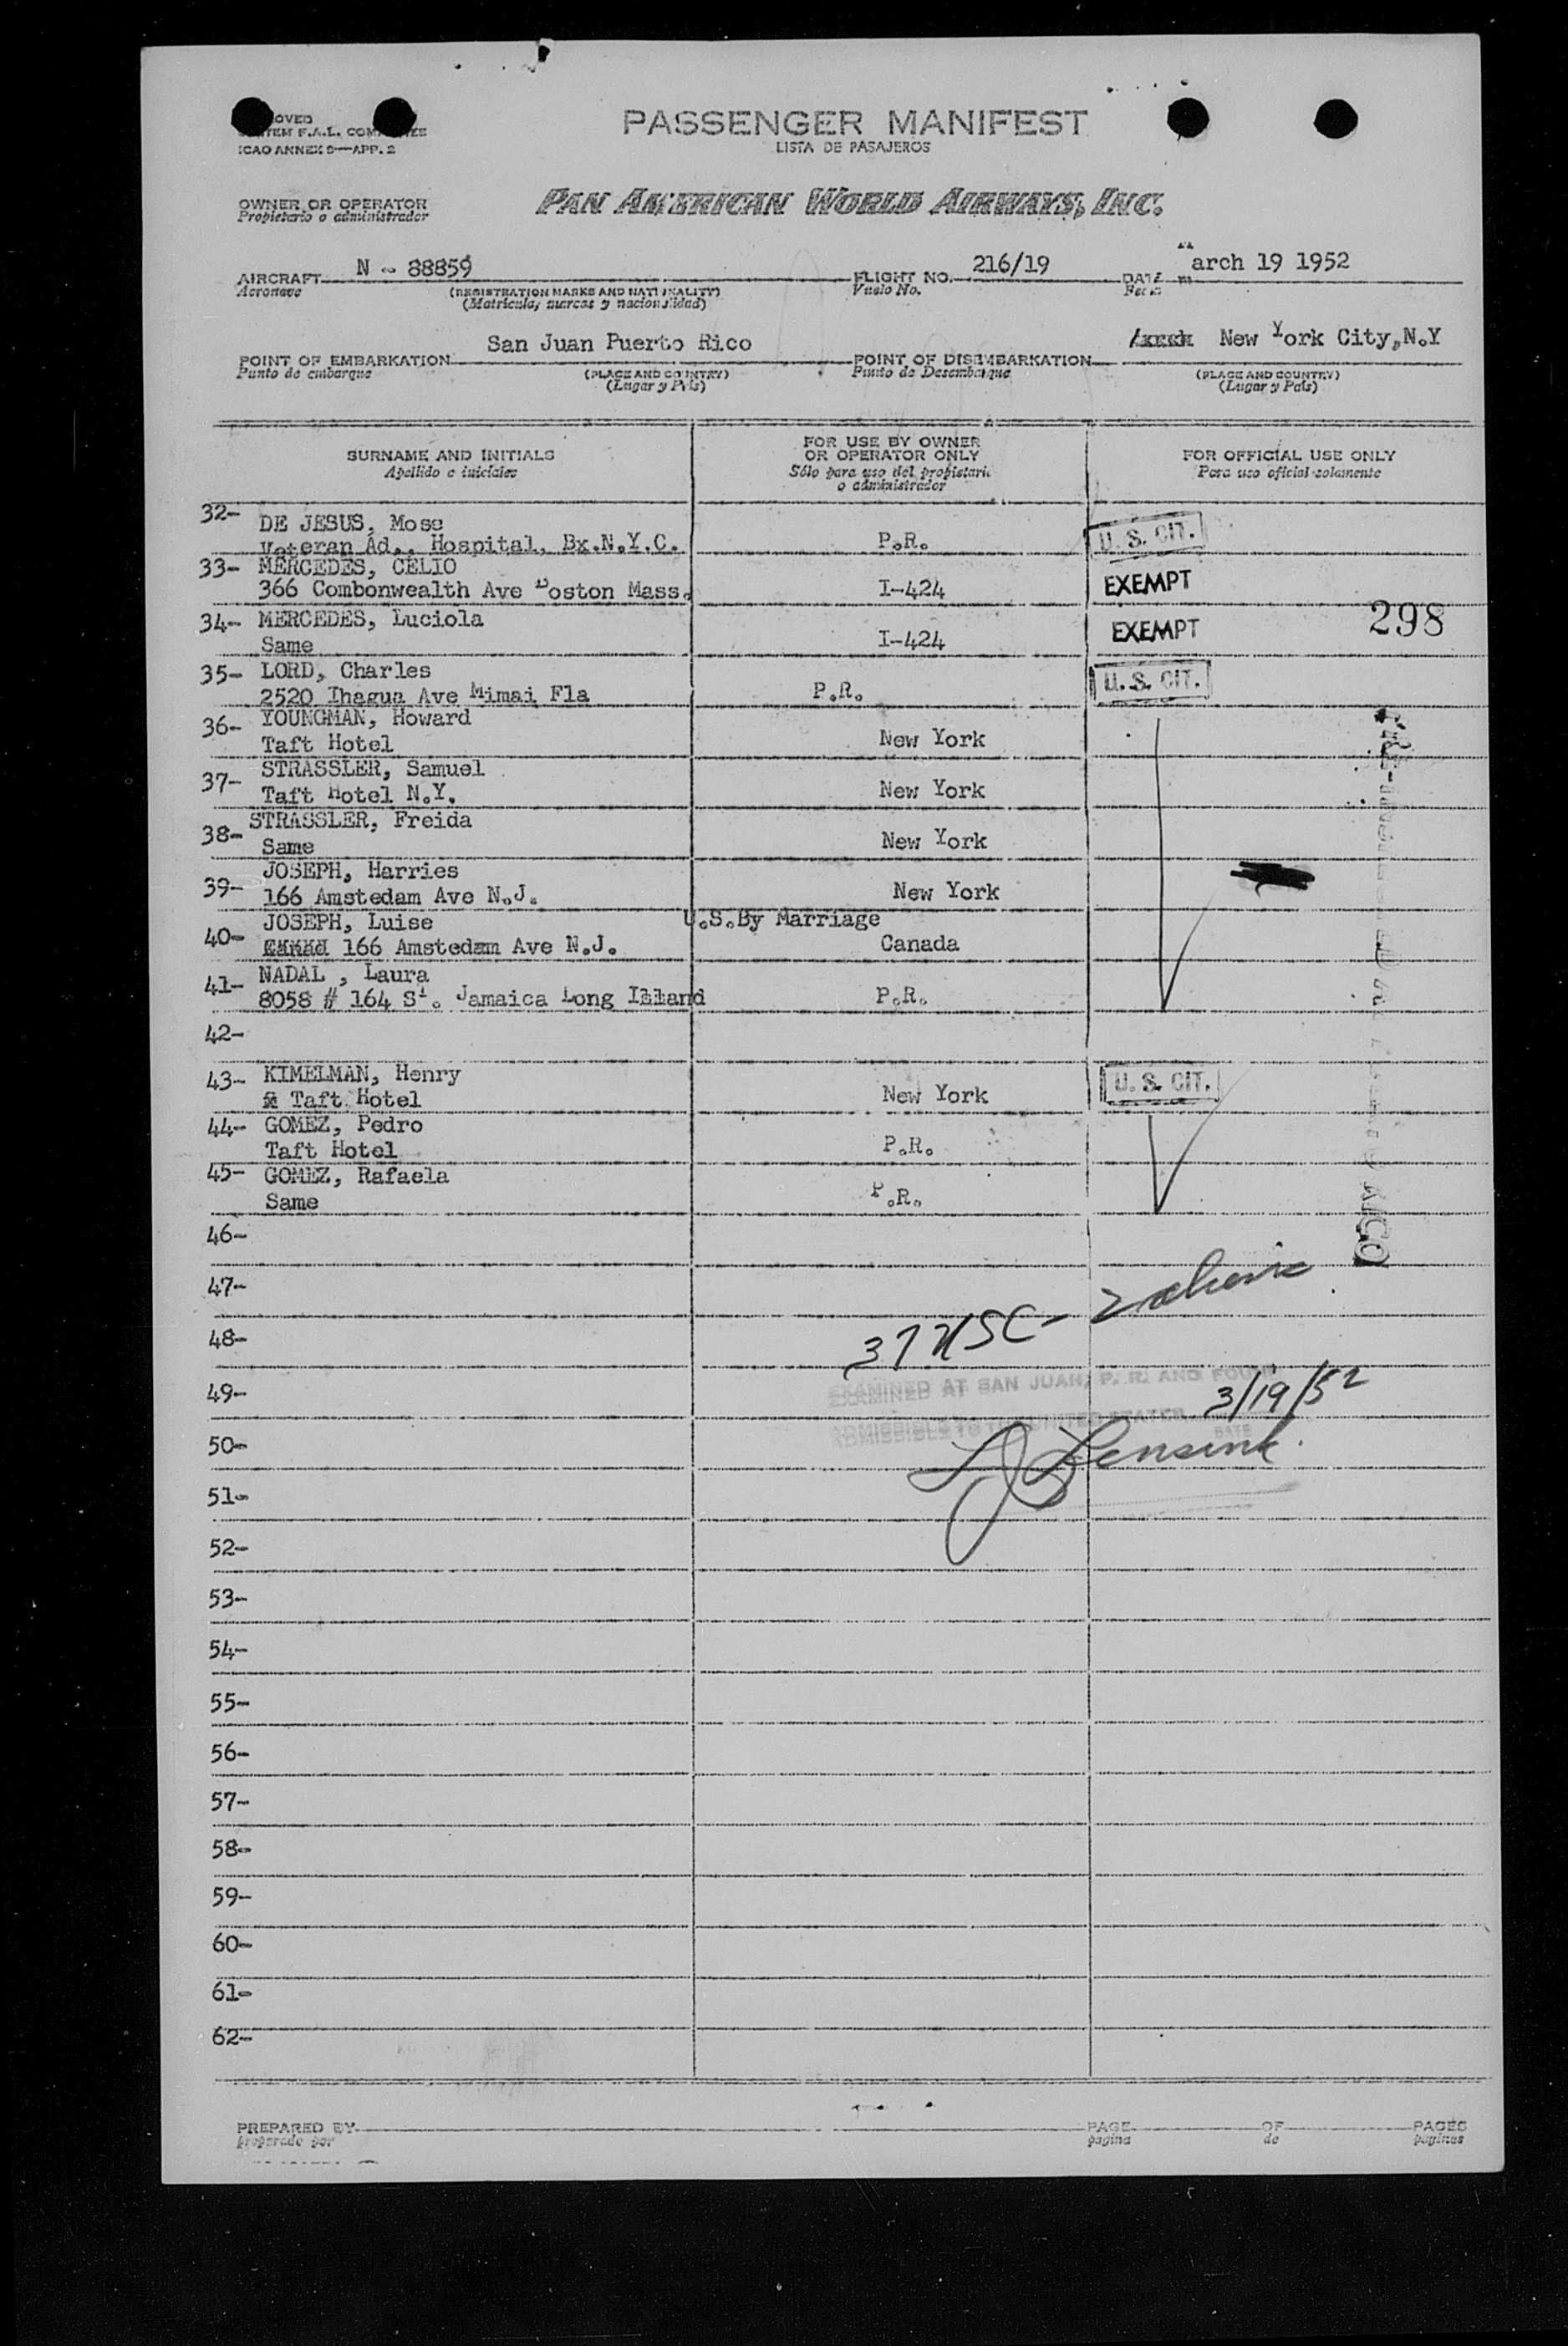 PASSENGER MANIFEST
LISTA DE PASAJEROS
ICAO ANNEX 9—APP. 2
OWNER OR OPERATOR
Propietario o administrador
PAN AMERICAN WORLD AIRWAYS, INC.
AIRCRAFT N - 88859 FLIGHT NO. 216/19 DATE March 19 1952
Aeronave (REGISTRATION MARKS AND NATIONALITY) Vuelo No.
(Matrícula, marcas y nacionalidad)
San Juan Puerto Rico New York City,N.Y
POINT OF EMBARKATION POINT OF DISEMBARKATION
Punto de embarque (PLACE AND COUNTRY) Punto de Desembarque (PLACE AND COUNTRY)
(Lugar y País) (Lugar y País)
SURNAME AND INITIALS FOR USE BY OWNER OR OPERATOR ONLY FOR OFFICIAL USE ONLY
Apellido e iniciales Sólo para uso del propietario o administrador Para uso oficial solamente
32- DE JESUS, Mose
Veteran Ad., Hospital, Bx.N.Y.C. P.R. U. S. CIT.
33- MERCEDES, CELIO
366 Combonwealth Ave Boston Mass. I-424 EXEMPT
34- MERCEDES, Luciola 298
Same I-424 EXEMPT
35- LORD, Charles
2520 Ihagua Ave Mimai Fla P.R. U. S. CIT.
36- YOUNGMAN, Howard
Taft Hotel New York
37- STRASSLER, Samuel
Taft Hotel N.Y. New York
38- STRASSLER, Freida
Same New York
39- JOSEPH, Harries
166 Amstedam Ave N.J. New York
40- JOSEPH, Luise U.S.By Marriage
166 Amstedam Ave N.J. Canada
41- NADAL , Laura
8058 # 164 St. Jamaica Long Illand P.R.
42-
43- KIMELMAN, Henry
Taft Hotel New York U. S. CIT.
44- GOMEZ, Pedro
Taft Hotel P.R.
45- GOMEZ, Rafaela
Same P.R.
46-
47-
48- 37 USC - 2 aliens
49- EXAMINED AT SAN JUAN, P. R. AND FOUND
3/19/52
ADMISSIBLE TO THE UNITED STATES
DATE
50-
51-
52-
53-
54-
55-
56-
57-
58-
59-
60-
61-
62-
PREPARED BY PAGE OF PAGES
preparado por página de páginas